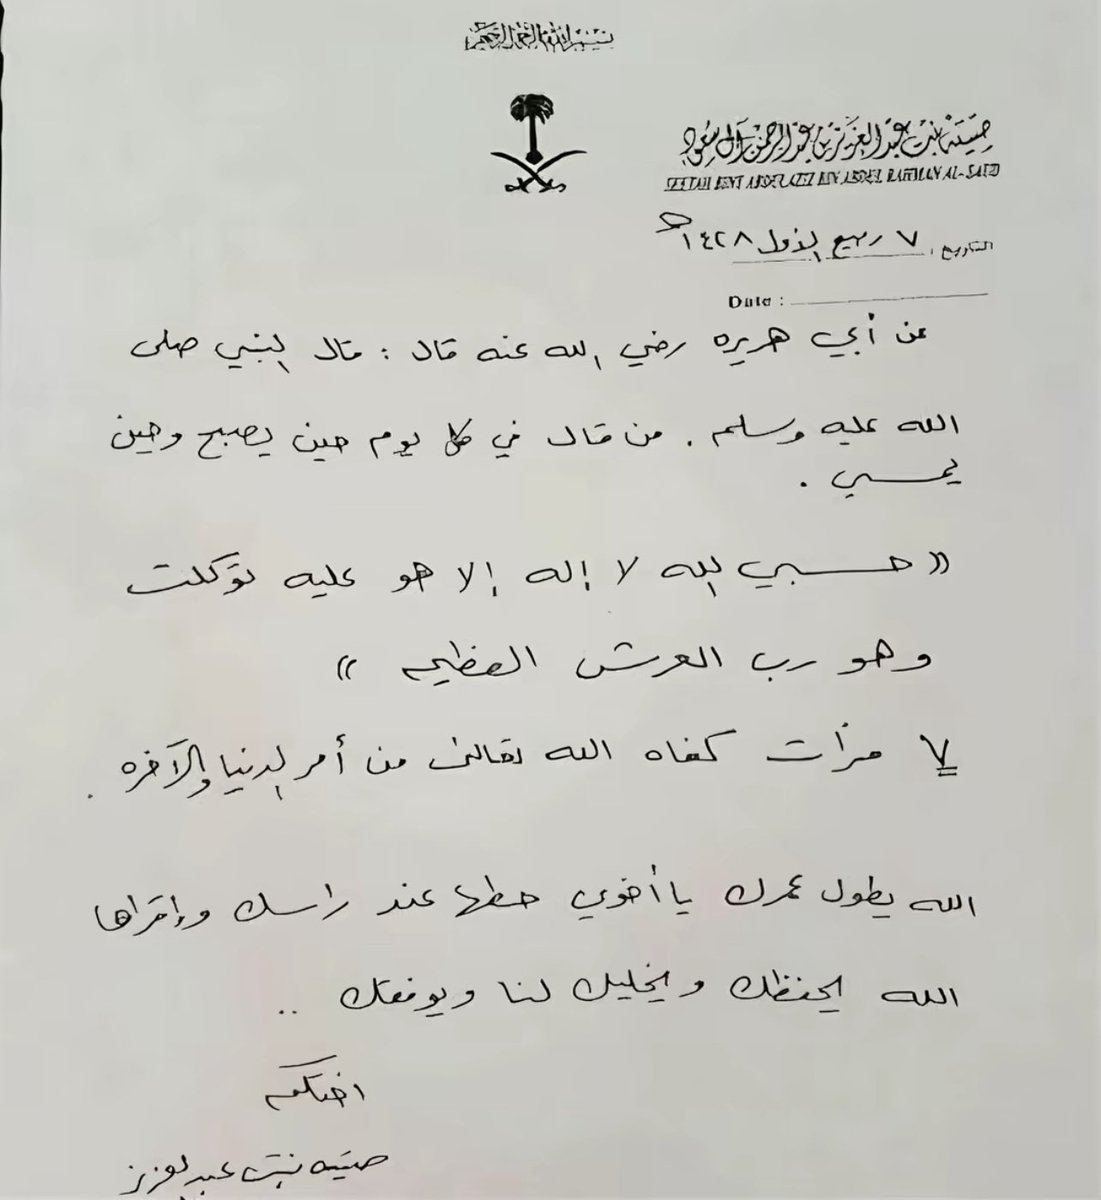 بسم الله الرحمن الرحيم
صيتة بنت عبدالعزيز بن عبدالرحمن آل سعود
SEETAH BENT ABDELAZIZ BIN ABDEL RAHMAN AL-SAUD
التاريخ : ٧ ربيع الاول ١٤٢٨هـ
Date :
عن أبي هريره رضي الله عنه قال : قال النبي صلى
الله عليه وسلم . من قال في كل يوم حين يصبح وحين
يمسي .
«حسبي الله لا إله إلا هو عليه توكلت
وهو رب العرش العظيم»
٧ مرات كفاه الله تعالى من أمر الدنيا والآخره .
الله يطول عمرك يا أخوي حطها عند راسك وإقراها
الله يحفظك ويخليك لنا ويوفقك ..
اختكم
صيته بنت عبدالعزيز